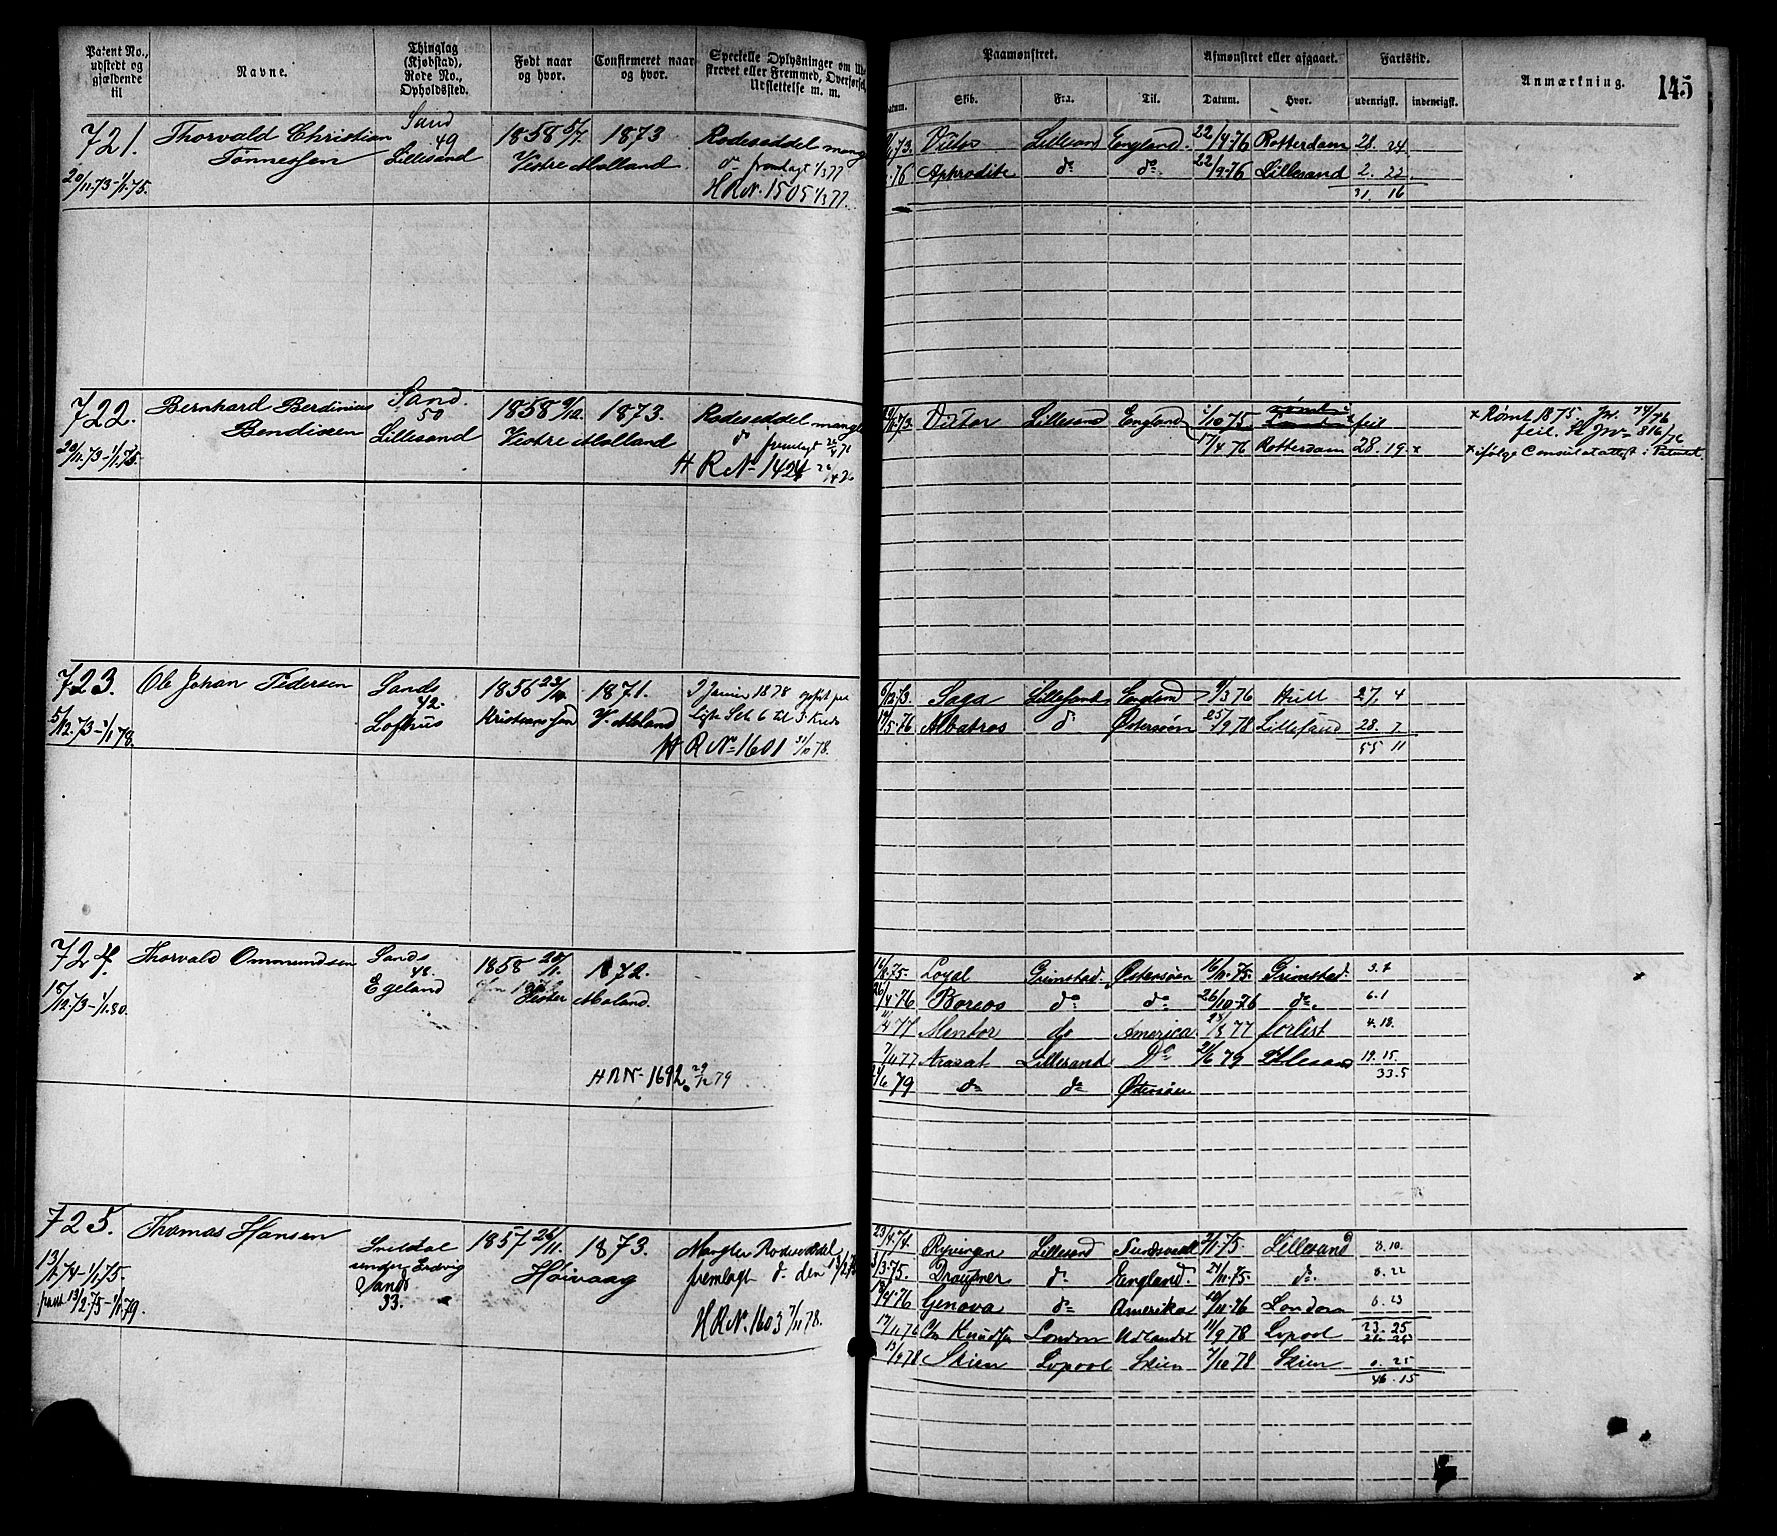 Patent No., udstedt og gjældende til
Navne.
Thinglag (Kjøbstad), Rode No., Opholdssted.
Født naar og hvor.
Confirmeret naar og hvor.
Specielle Oplysninger om
strevet eller Fremmed, Overførsel,
Udslettelse m. m.
Paamønstret.
Datum. Skib. Fra. Til.
Afmønstret eller afgaaet.
Datum. Hvor.
Fartstid.
udenrigsk. indenrigsk.
Anmærkning.
145
721. Thorvald Christian Tønnessen
20/11.73-1/1.75.
Sand 49 Lillesand
1858 5/7. 1873
Vestre Molland
Rodeseddel mangl
do fremlagt 1/3 77
H R N. 1505 1/3 77.
73. Victor Lillesand England. 22/4 76 Rotterdam 28. 24
76 Aphrodite do do 22/9 76 Lillesand 2. 22
31. 16
722. Bernhard Berdinius Bendixen
20/11.73-1/1.75.
Sand. 50 Lillesand
1858 9/12. 1873.
Vestre Molland
Rodeseddel mangle
do fremlagt
H R No 1424
73. Victor Lillesand England 1/10 75 feil
17/4 76 Rotterdam 28. 19. x
x Rømt 18 75. Jr. 74/76
feil. Jr. 816/76
x ifølge Consulatattest i
723. Ole Johan Pedersen
5/12.73-1/1 78.
Sands 42. Lofthus
1856 23/12 1871.
Kristianssand V. Moland
I Januar 1878 opført paa
Liste
H R No 1601 31/10 78.
6/12 73 Saga Lillesand England 9/3 76 Hull 27, 4
17/5 76 Albatros do Østersøen 25/9 78 Lillesand 28. 7
55 11
724. Thorvald Ommundsen
18/12.73-1/1.80.
Sands 48. Egeland
1858 20/11. 1872.
Vester Moland.
H R No 1692 29/12 79
75. Loyal Grimstad. Østersøen 16/11. 75. Grimstad. 3. 7
26/4 76 Boreas do do 26/10 76 do. 6. 1
77 Mentor do America 28/8 77 forlist 4. 18.
7/11 77 Ararat Lillesand Do 21/6 79 Lillesand 19. 15
33. 5
79 do do Østersøen
725. Thomas Hansen
13/1.74-1/1.75.
13/2.75-1/1.79.
under Sands 33.
1857 26/11. 1873.
Høivaag
Mangler Rodeseddel
fremlagt do den 13/2 75
H R N. 1603 7/11 78.
23/4.74. Ryvingen Lillesand 2/1.75. Lillesand 8. 10.
3.75. Draupner do England. 27/11.75. do. 8. 22
4.76 Genova do Amerika 10/11.76 London 6. 23
17/11 76 Knudsen London Udlandet 11/9 78 Lvpool 23. 25
13/9 78 Skien Lvpool Skien 7/10 78 Skien 0. 25
46. 15